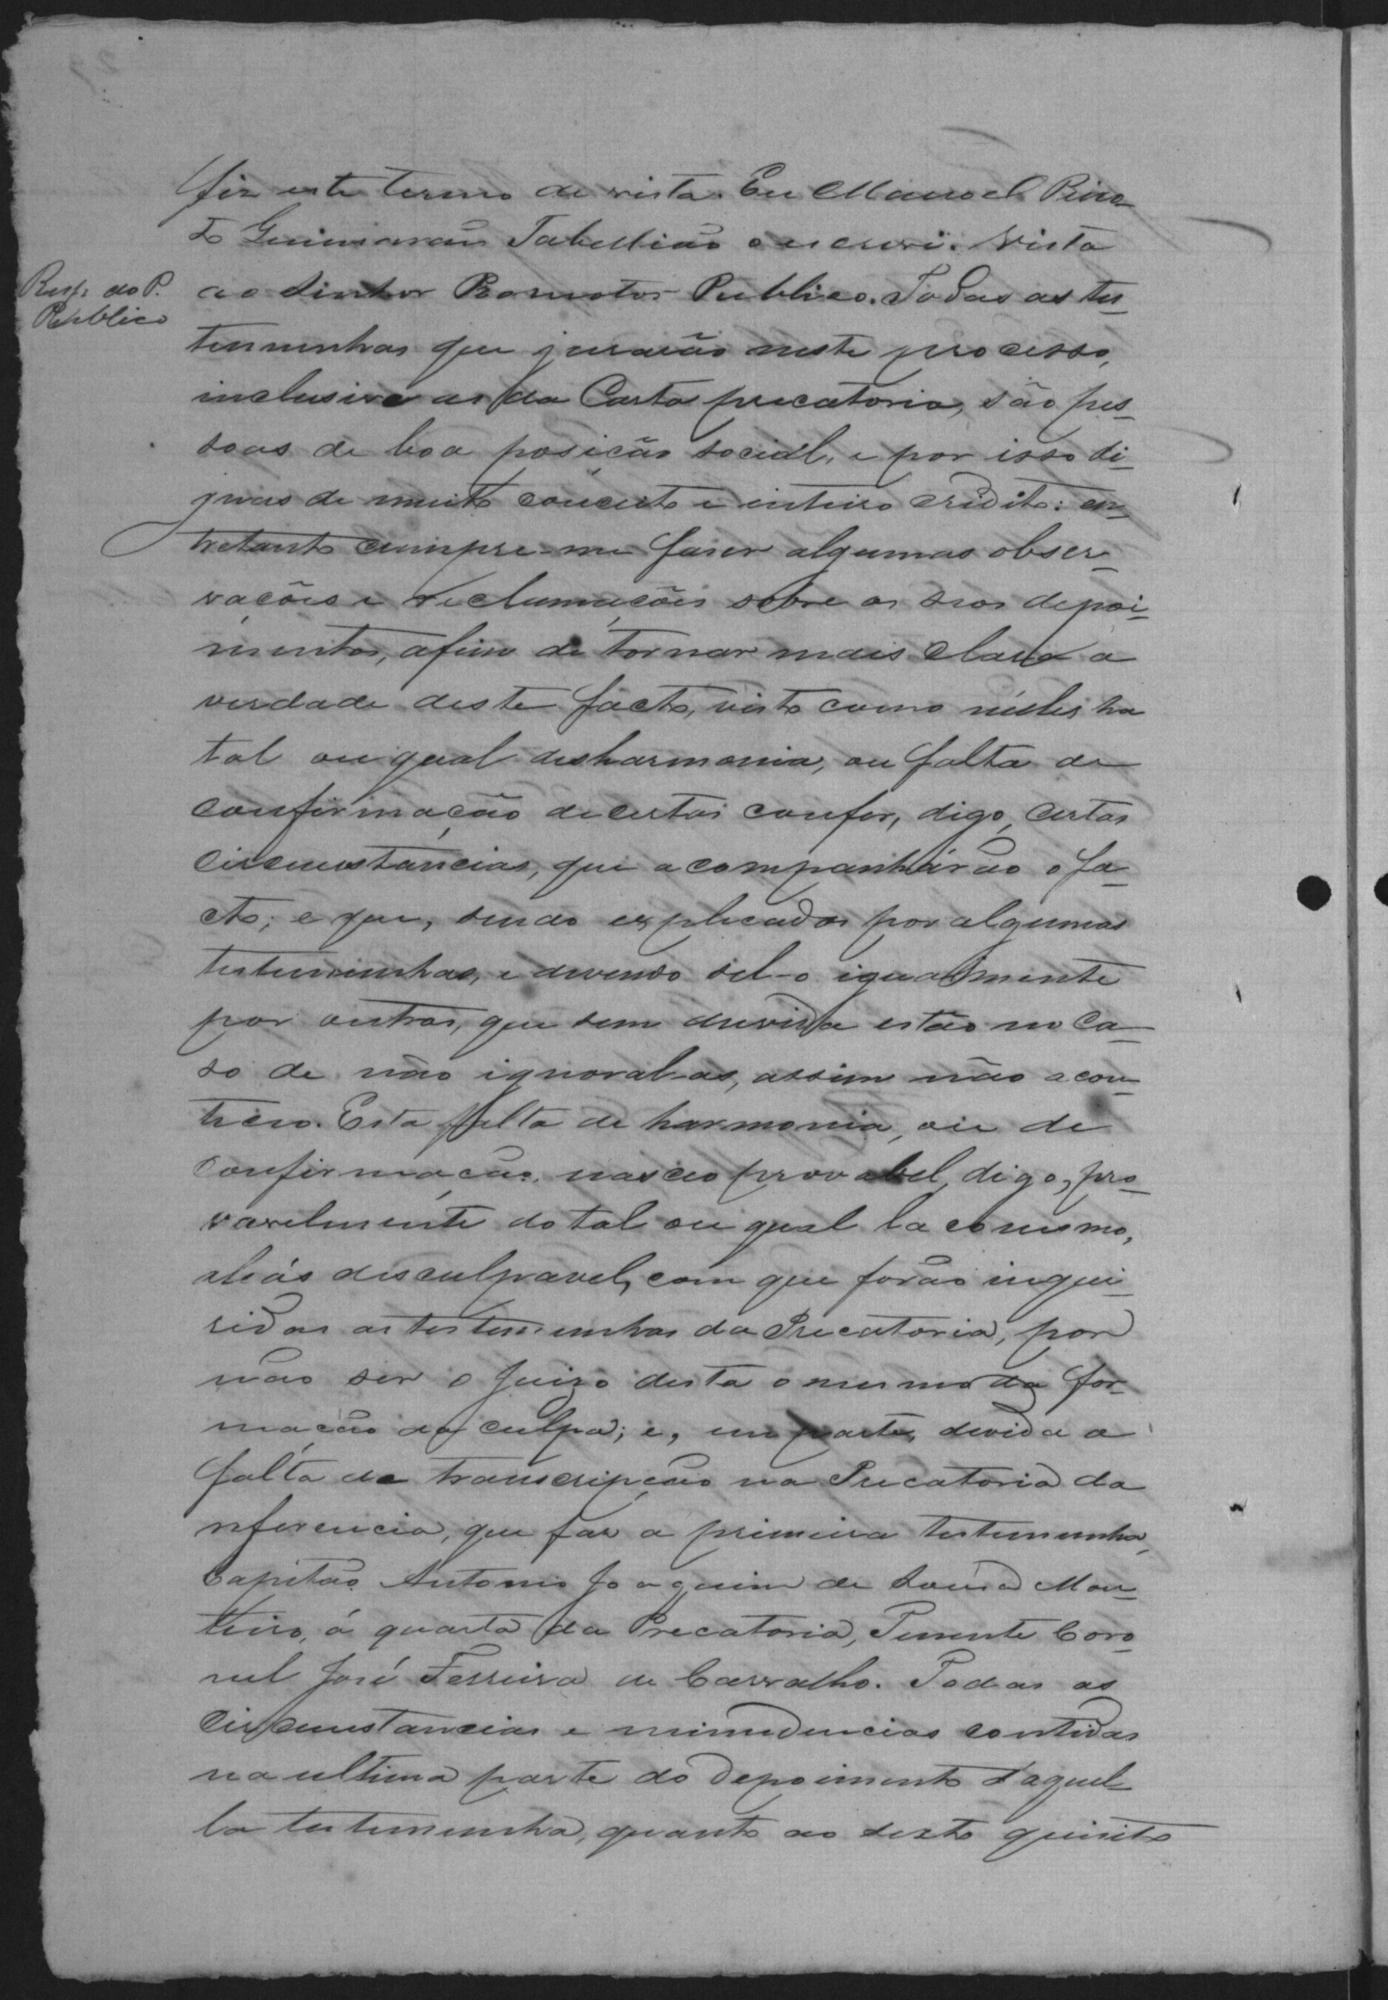 fiz este termo de vista. Eu Manoel Pin-
to Guimarães Tabellião o escrevi. Vista
Resp. do P.
Publico
ao Senhor Promotor Publico. Todas as tes-
temunhas que jurarão neste processo,
inclusive as da Carta precatoria, são pes-
soas de boa posição social, e por isso di-
gnas de muito conceito e inteiro credito: en-
tretanto cumpre-me faser algumas obser-
vacões e reclamações sobre os seos depoi-
mentos, afim de tornar mais clara a
verdade deste facto, visto como nélles ha
tal ou qual desharmonia, ou falta de
confirmação de certas confor, digo, certas
circumstancias, que acompanhárão o fa-
cto; e que, sendo explicadas por algumas
testemunhas, e devendo sel-o igualmente
por outras, que sem duvida estão no ca-
so de não ignoral-as, assim não acon-
teceo. Esta falta de harmonia, ou de
confirmação, nasceo provabel, digo, pro-
vavelmente do tal ou qual laconismo,
aliás desculpavel, com que forão inqui-
ridas as testemunhas da Precatoria, por
não ser o Juizo desta o mesmo da for-
mação da culpa; e, em parte, devida a
falta de transcripção na Precatoria da
referencia, que faz a primeira testemunha,
Capitão Antonio Joaquim de Souza Mon-
teiro, á quarta da Precatoria, Tenente Coro-
nel José Ferreira de Carvalho. Todas as
circumstancias e minudencias contidas
na ultima parte do depoimento d'aquel-
la testemunha, quanto ao sexto quisito